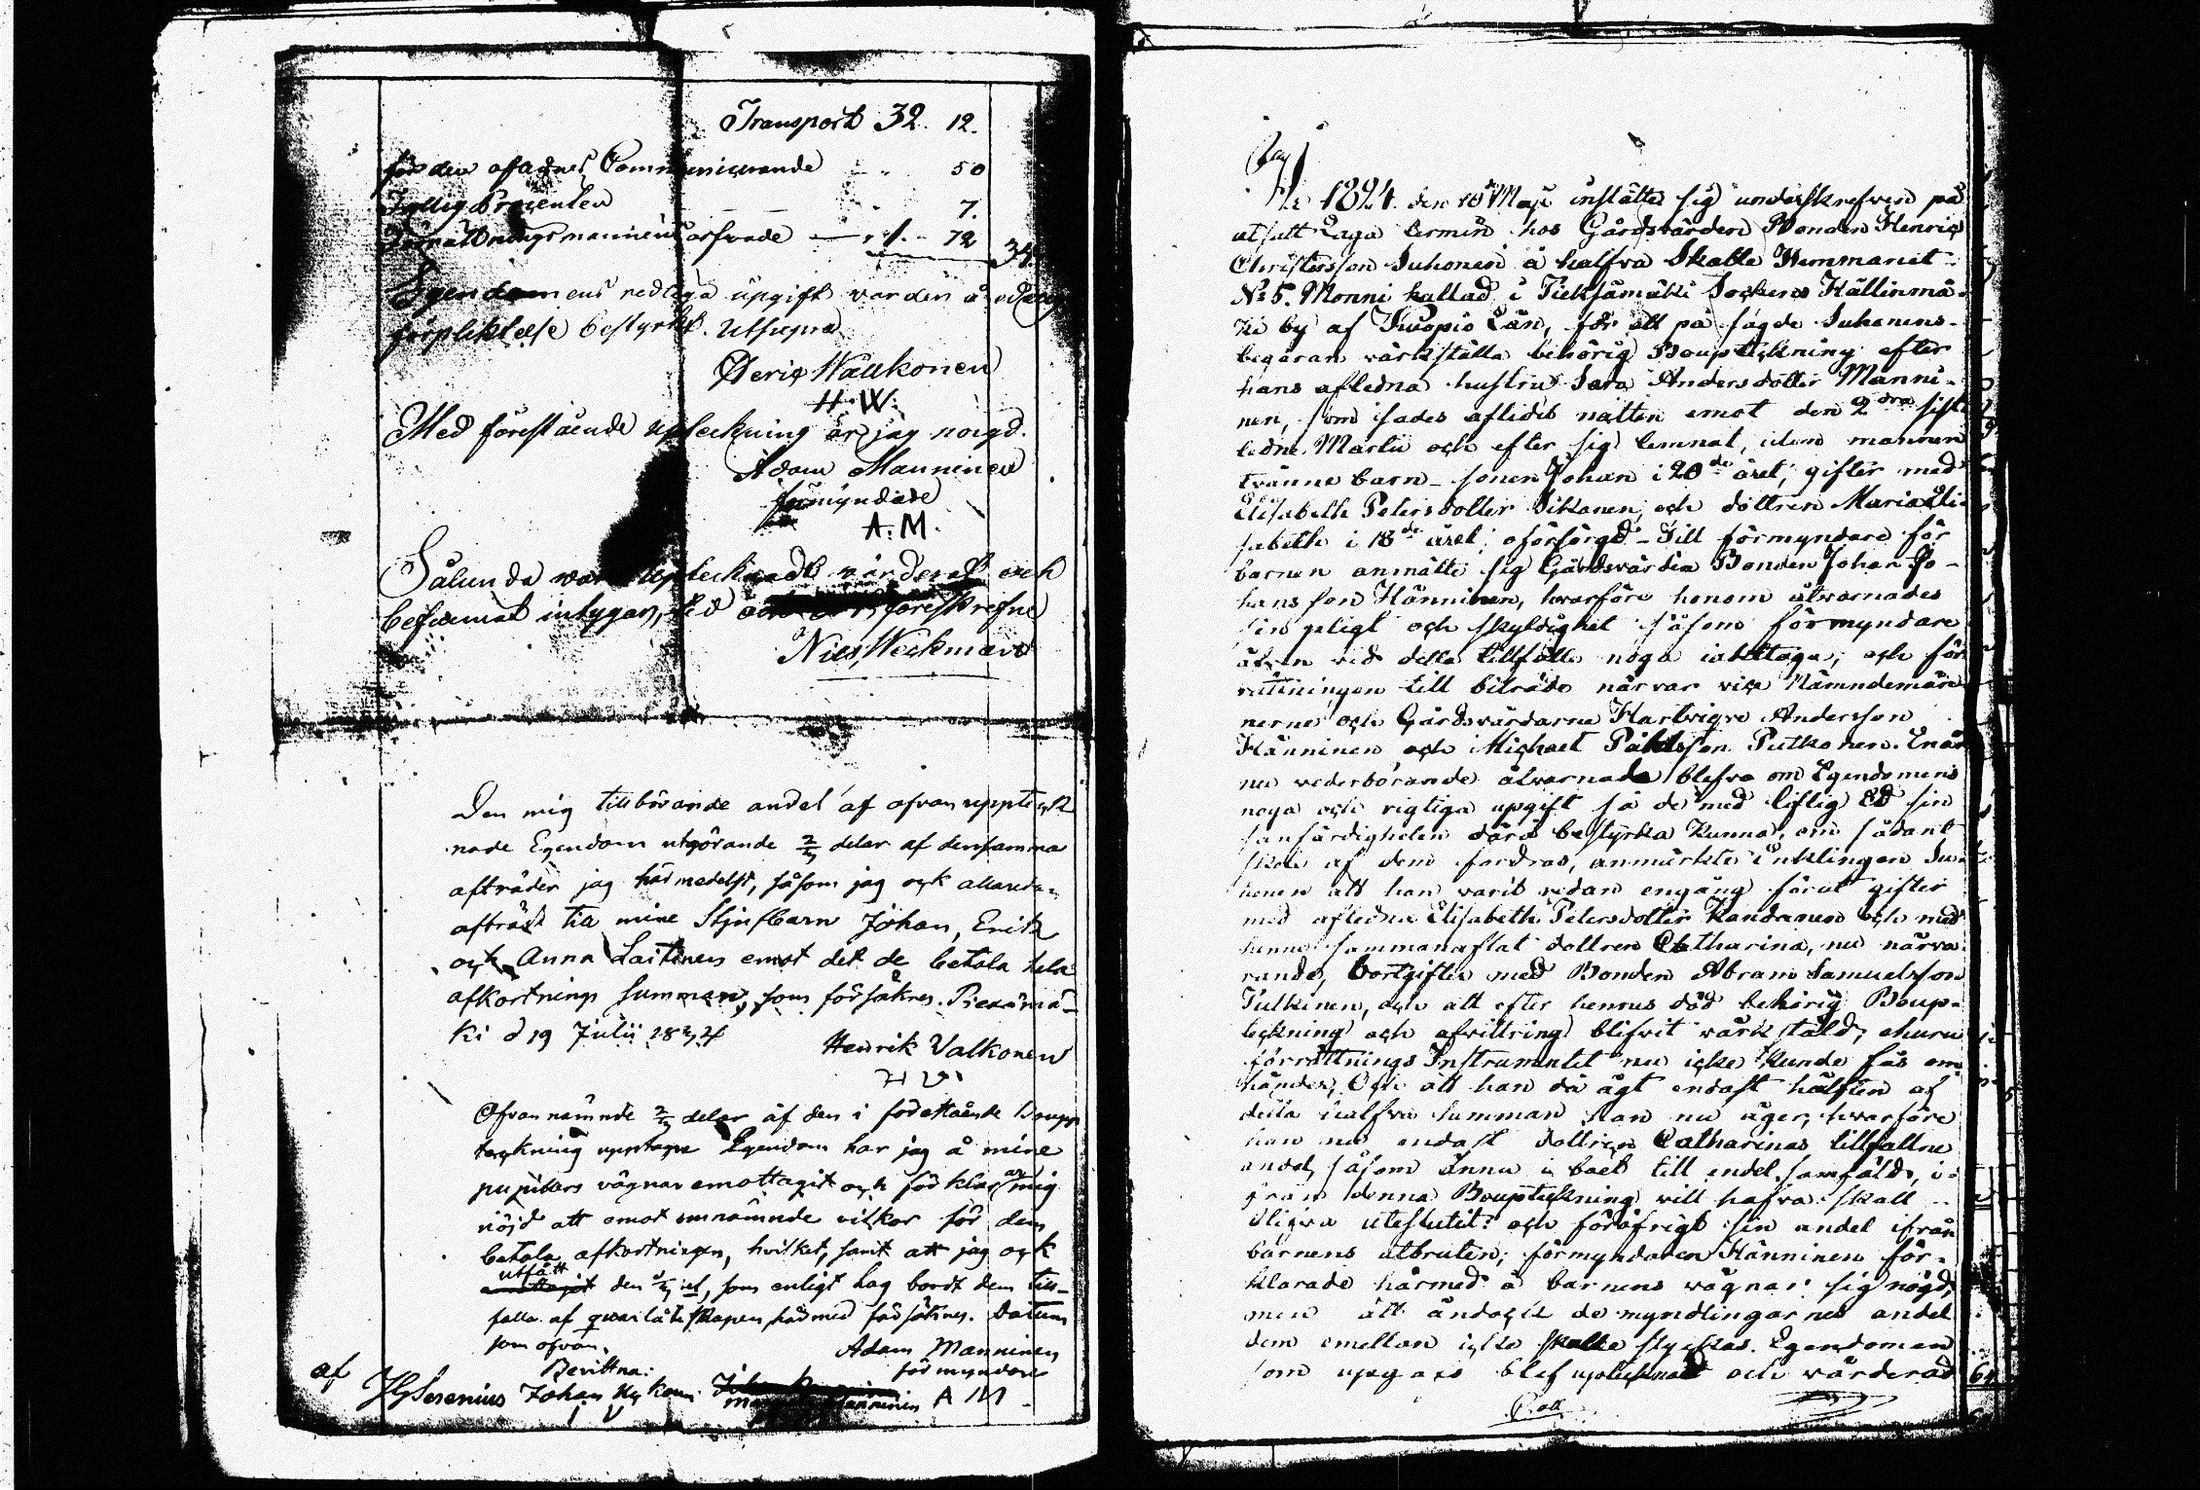 Transport 32. 12.
för den aflednes Communicerande 50
Fattig Procenten 7.
Förrättningsmannens arfvode 1. 72 34.
Egendomens redliga upgift varder å edelig
förpliktelse bestyrkt. Utsupra
Heric Walkonen
H.W.
Med förestående upteckning är jag nöigd.
Adam Manninen
förmyndare
A.M.
Sålunda vara upteknadt värderat och
befunnit intygar, tid och ort föreskrefne
Nils Weckman
Den mig tillbörande andel af ofvan uppteck
nade Egendom utgörande 2/3 delar af densamma
afträder jag härmedelst, såsom jag ock allareda
afträdt till mine Stjufbarn Johan, Erik
och Anna Laitinen emot det de betala hela
afkortnings summan, som försäkres. Piexämä-
ki d 19 Julii 1824
Henrik Valkonen
H V.
Ofvannämnde 2/3 delar af den i förestående Boupp
teckning upptagne Egendom har jag å mine
pupillers vägnar emottagit och förklarar mig
nöjd att emot omnämnde vilkor för dem
betala afkortningen, hvilket, samt att jag ock
utfått
den 1/3 del, som enligt Lag bordt dem till-
falla af qvarlåtenskapen, härmed försäkres. Datum
som ofvan.
Adam Manninen
förmyndare
A M
Bevittna:
af
Hg Serenius Johan
Åhr 1824 den 18 Maji inställte sig underskrefven på
utsatt Laga termin hos Gårdsvärden Bonden Henric
Christersson Suhonen å halfva Skatte Hemmanet
No 5. Monni kallad i Pieksämäki Sockens Källinmä-
ki by af Kuopio Län, för att på sagde Suhonens
begäran värkställa behörig Bouptekning efter
hans afledna hustru Sara Andersdotter Manni-
nen, som sades aflidit natten emot den 2dra sist-
ledne Martii och efter sig lemnat, utom mannen
tvänne barn - sonen Johan i 20de året, gifter med
Elisabeth Petersdotter Sikanen, och dottren Maria Eli-
sabeth i 18de året, oförsörgd - Till förmyndare för
barnen anmälte sig Gårdsvärden Bonden Johan Jo-
hansson Hänninen, hvarföre honom åtvarnades
sin pligt och skyldighet såsom förmyndare
äfven vid detta tillfälle noga iakttaga; och för
rättningen till biträde närvar vice Nämndemän
nerne och Gårdsvärdarne Hartvig Andersson
Hänninen och Michael Påhlsson Putkonen. Enär
nu vederbörande åtvarnade blefvo om Egendomens
noga och rigtiga upgift så de med liflig Ed sin
sanfärdigheten därå bestyrka kunna, om sådant
skulle af dem fordras, anmärkte Enklingen Su-
honen att han varit redan engång förut gifter
med afledna Elisabeth Petersdotter Kandanen och med
henne sammanaflat dottren Catharina, nu närva-
rande, bortgifter med Bonden Abram Samuelsson
Pulkinen, och att efter hennes död behörig Boup-
teckning och afvittring blifvit värkstäld, ehuru
förrättnings Instrumentet nu icke kunde fås om
händer, Och att han då ägt endast hälften af
detta halfva hemman han nu äger, hvarföre
han nu endast dottren Catharinas tillfallne
andel, såsom ännu i boet till endel samfäld, i-
från denna Bouptekning vill hafva skall
blifva uteslutit och föröfrigt sin andel ifrån
barnens utbruten; förmyndaren Hänninen för-
klarade härmed å barnens vägnar sig nögd,
men att ändock de myndlingarnes andel
dem emellan icke skulle styckas. Egendomen
som upgafs blef uptecknad och värderad